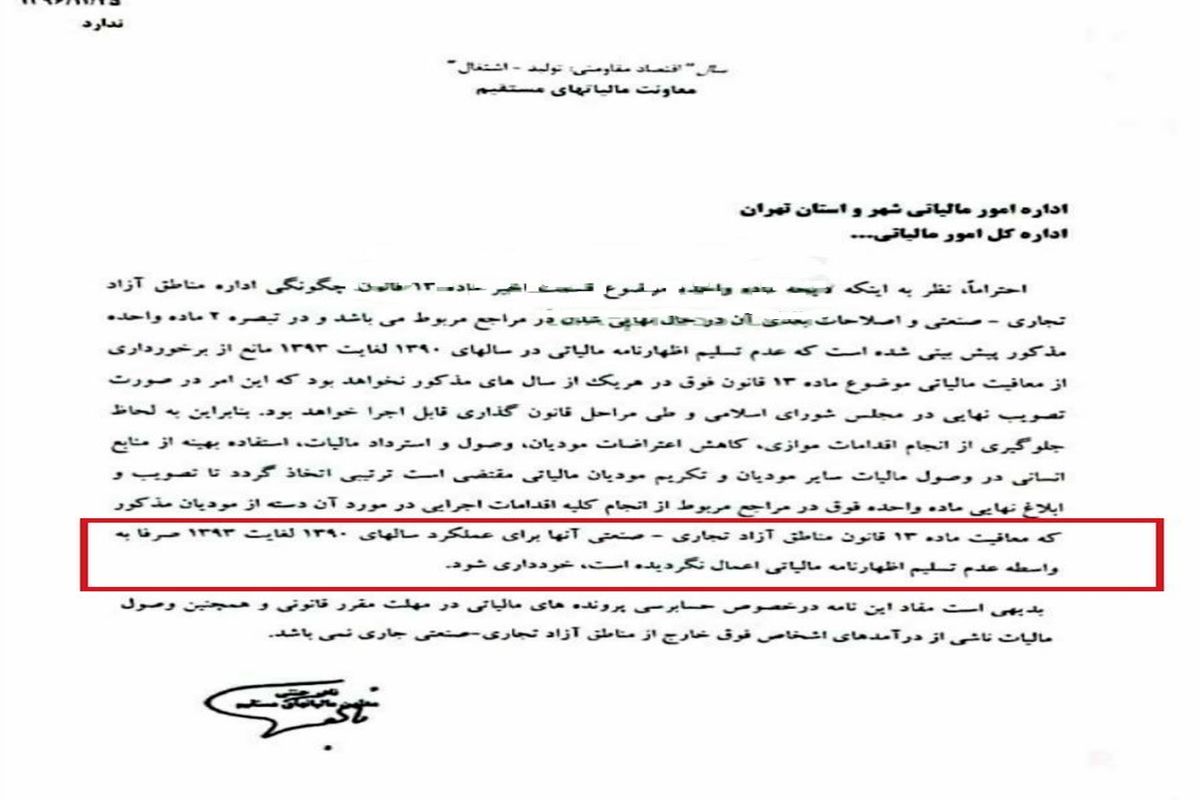 ندارد
سال" اقتصاد مقاومتی: تولید - اشتغال"
معاونت مالیاتهای مستقیم
اداره امور مالیاتی شهر و استان تهران
اداره کل امور مالیاتی...
احتراماً، نظر به اینکه ماده واحده موضوع قسمت اخیر ماده ۱۳ قانون چگونگی اداره مناطق آزاد
تجاری - صنعتی و اصلاحات بعدی آن در حال نهایی شدن در مراجع مربوط می باشد و در تبصره ۲ ماده واحده
مذکور پیش بینی شده است که عدم تسلیم اظهارنامه مالیاتی در سالهای ۱۳۹۰ لغایت ۱۳۹۳ مانع از برخورداری
از معافیت مالیاتی موضوع ماده ۱۳ قانون فوق در هریک از سال های مذکور نخواهد بود که این امر در صورت
تصویب نهایی در مجلس شورای اسلامی و طی مراحل قانون گذاری قابل اجرا خواهد بود. بنابراین به لحاظ
جلوگیری از انجام اقدامات موازی، کاهش اعتراضات مودیان، وصول و استرداد مالیات، استفاده بهینه از منابع
انسانی در وصول مالیات سایر مودیان و تکریم مودیان مالیاتی مقتضی است ترتیبی اتخاذ گردد تا تصویب و
ابلاغ نهایی ماده واحده فوق در مراجع مربوط از انجام کلیه اقدامات اجرایی در مورد آن دسته از مودیان مذکور
که معافیت ماده ۱۳ قانون مناطق آزاد تجاری - صنعتی آنها برای عملکرد سالهای ۱۳۹۰ لغایت ۱۳۹۳ صرفا به
واسطه عدم تسلیم اظهارنامه مالیاتی اعمال نگردیده است، خودداری شود.
بدیهی است مفاد این نامه درخصوص حسابرسی پرونده های مالیاتی در مهلت مقرر قانونی و همچنین وصول
مالیات ناشی از درآمدهای اشخاص فوق خارج از مناطق آزاد تجاری-صنعتی جاری نمی باشد.
معاون مالیاتهای مستقیم